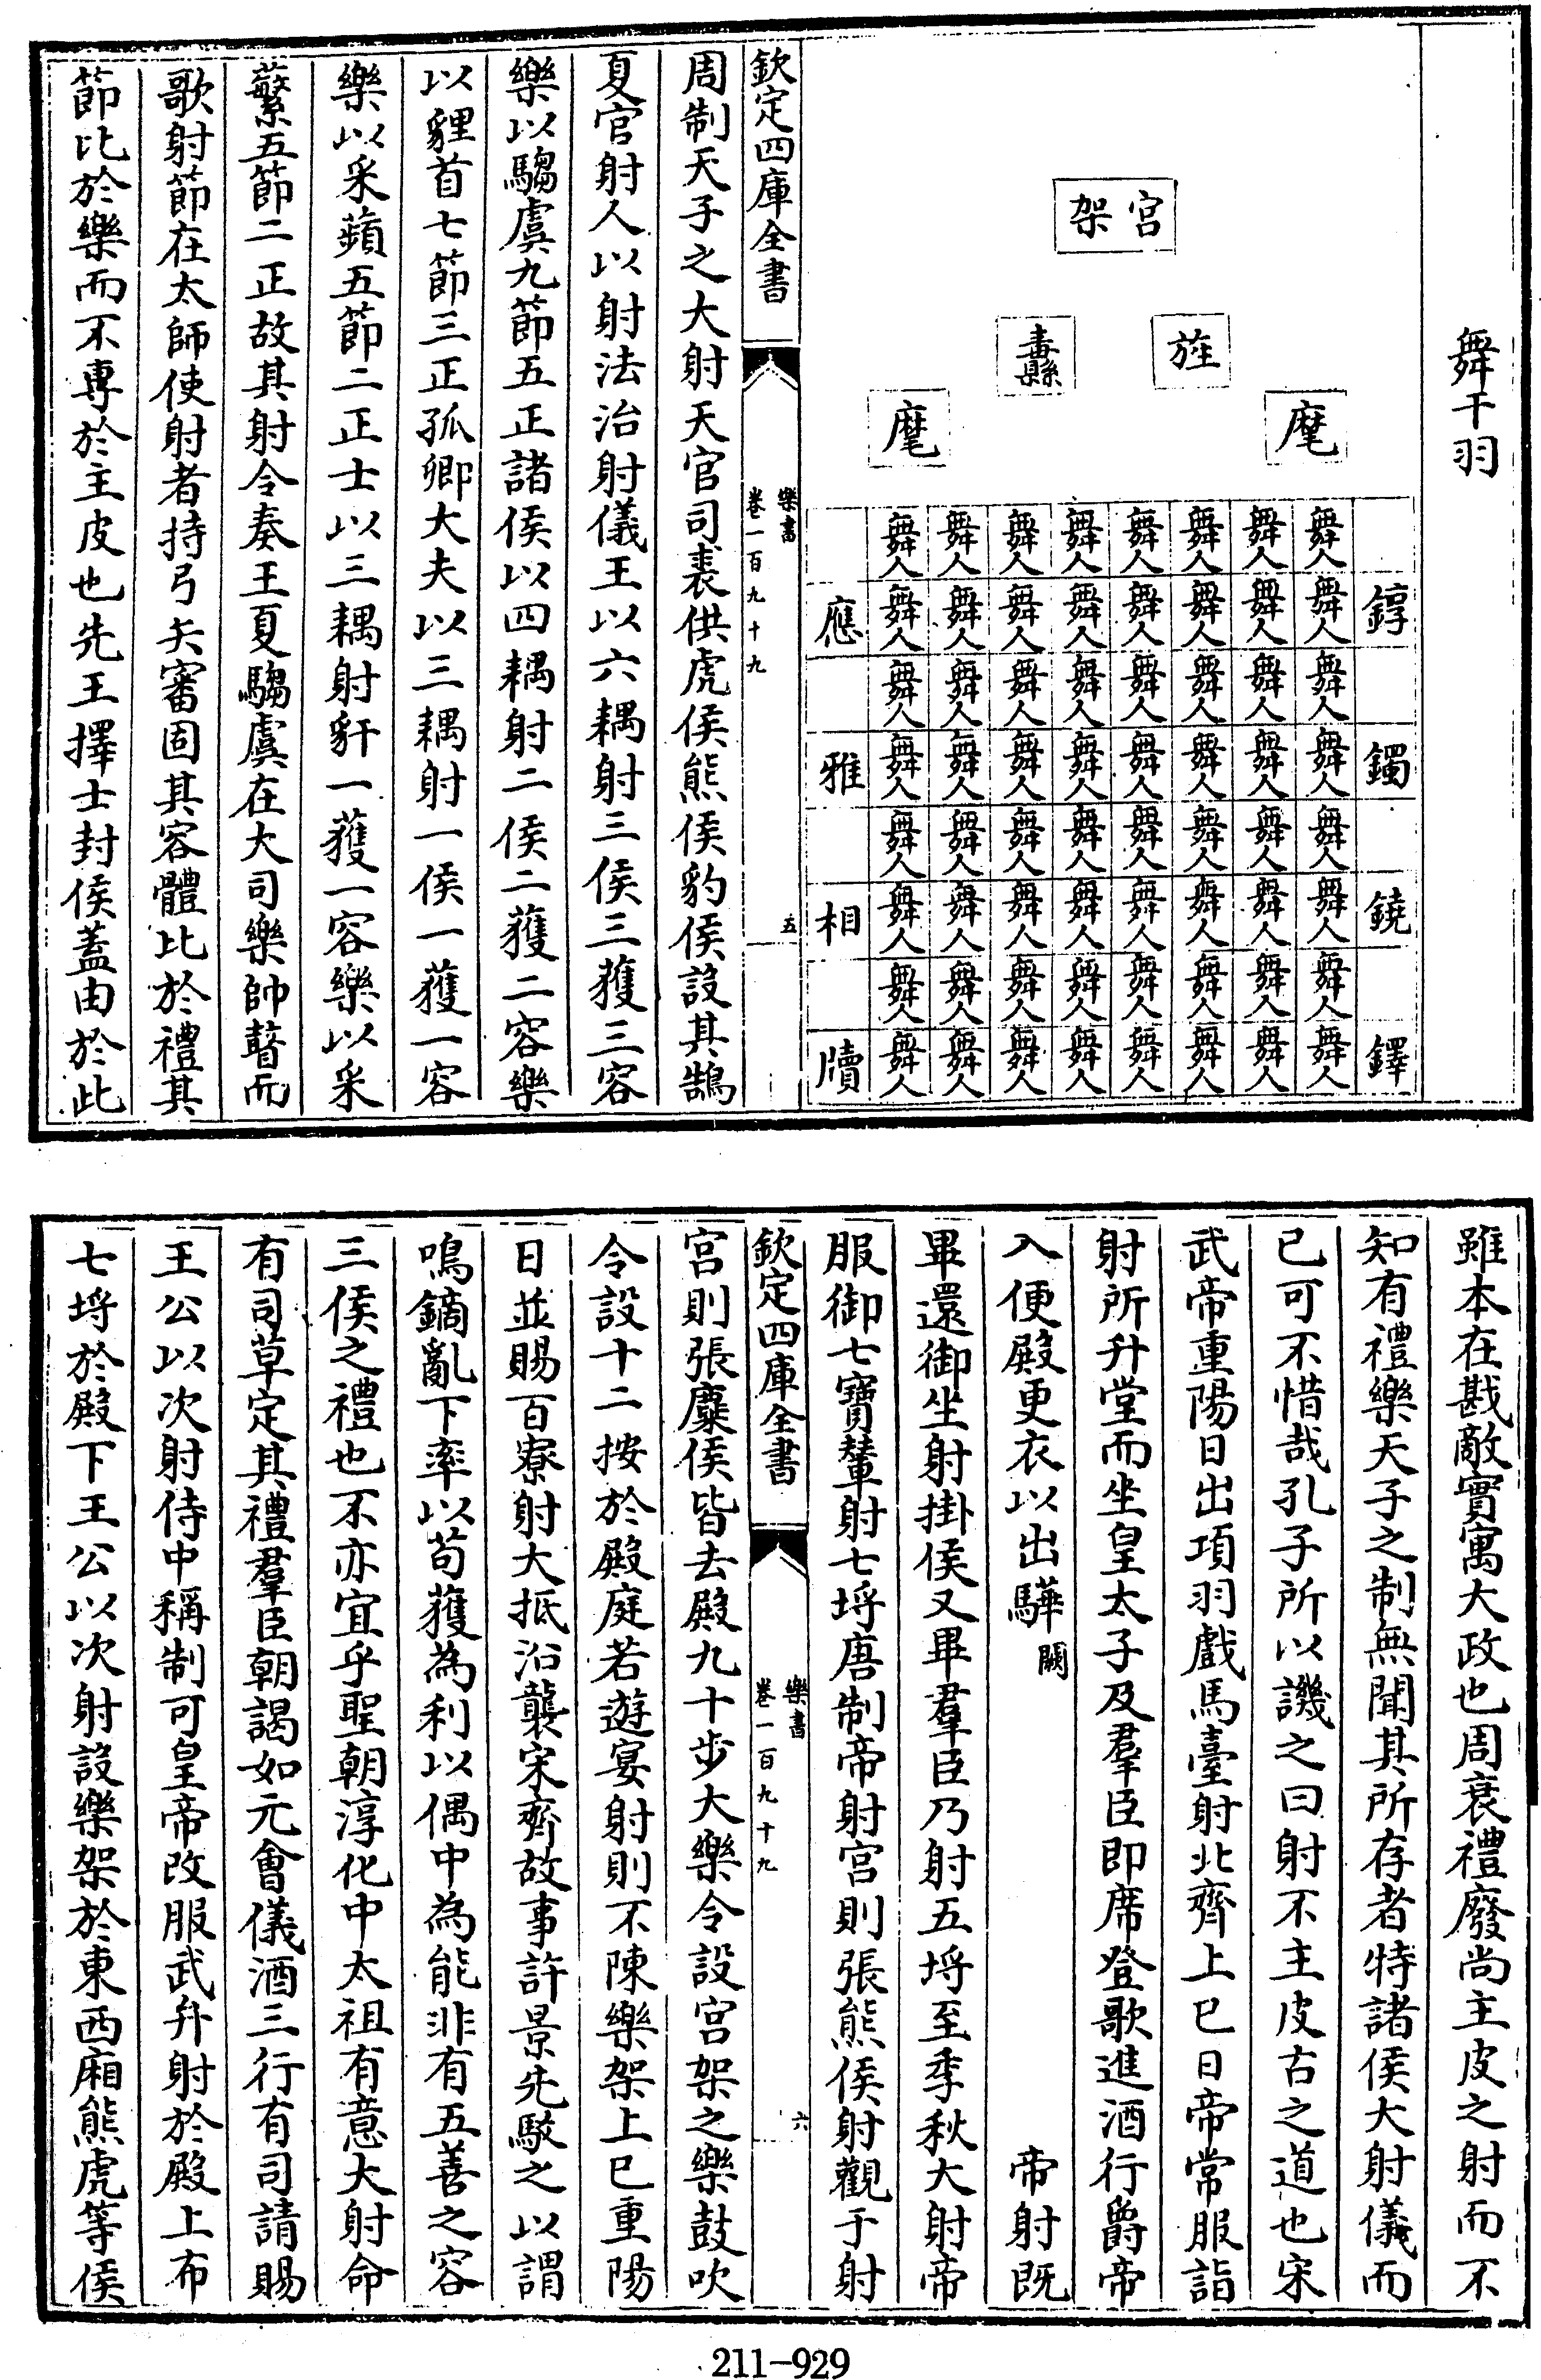 舞干羽
宫架
旌
纛
麾
麾
錞
鐲
鐃
鐸
舞人舞人舞人舞人舞人舞人舞人舞人
舞人舞人舞人舞人舞人舞人舞人舞人
舞人舞人舞人舞人舞人舞人舞人舞人
舞人舞人舞人舞人舞人舞人舞人舞人
舞人舞人舞人舞人舞人舞人舞人舞人
舞人舞人舞人舞人舞人舞人舞人舞人
舞人舞人舞人舞人舞人舞人舞人舞人
舞人舞人舞人舞人舞人舞人舞人舞人
應
雅
相
牘
欽定四庫全書
樂書
卷一百九十九
五
周制天子之大射天官司裘供虎侯熊侯豹侯設其鵠
夏官射人以射法治射儀王以六耦射三侯三獲三容
樂以騶虞九節五正諸侯以四耦射二侯二獲二容樂
以貍首七節三正孤卿大夫以三耦射一侯一獲一容
樂以采蘋五節二正士以三耦射豻一獲一容樂以采
蘩五節二正故其射令奏王夏騶虞在大司樂帥瞽而
歌射節在太師使射者持弓矢審固其容體比於禮其
節比於樂而不專於主皮也先王擇士封侯蓋由於此
雖本在戡敵實寓大政也周衰禮廢尚主皮之射而不
知有禮樂天子之制無聞其所存者特諸侯大射儀而
已可不惜哉孔子所以譏之曰射不主皮古之道也宋
武帝重陽日出項羽戲馬臺射北齊上巳日帝常服詣
射所升堂而坐皇太子及羣臣即席登歌進酒行爵帝
入便殿更衣以出驊闕帝射既
畢還御坐射掛侯又畢羣臣乃射五埒至季秋大射帝
服御七寶輦射七埒唐制帝射宫則張熊侯射觀于射
欽定四庫全書
樂書
卷一百九十九
六
宫則張麋侯皆去殿九十步大樂令設宫架之樂鼓吹
令設十二按於殿庭若遊宴射則不陳樂架上巳重陽
日並賜百寮射大抵沿襲宋齊故事許景先駮之以謂
鳴鏑亂下率以苟獲為利以偶中為能非有五善之容
三侯之禮也不亦宜乎聖朝淳化中太祖有意大射命
有司草定其禮羣臣朝謁如元會儀酒三行有司請賜
王公以次射侍中稱制可皇帝改服武弁射於殿上布
七埒於殿下王公以次射設樂架於東西廂熊虎等侯
211-929